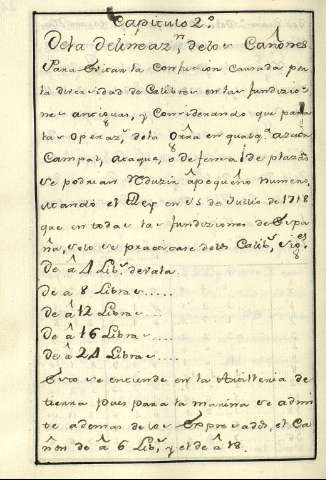 Capitulo 2º
De la delineaz.n de los Cañones
Para Evitar la Confusion Causada por
la diversidad de Calibres en las fundizio=
nes antiguas, y Considerando que para
las Operaz.s de la Orña en qualq.a azcion
Campal, Ataque, o defensa de plazas
se podrian Reduzir â pequeño numero,
mando el Rey en 15 de Jullio de 1718
que en todas las fundiziones de Espa
ña, solo se practicase de los Calib.s sig.es
de â 4 Lib.s de vala
de a 8 Libras.....
de â 12 Libras....
de â 16 Libras....
de â 24 Libras....
Esto se entiende en la Artilleria de
tierra pues para la marina se admi
te ademas de los Expresados, el Ca
ñon de â 6 Lib.s y el de â 18.